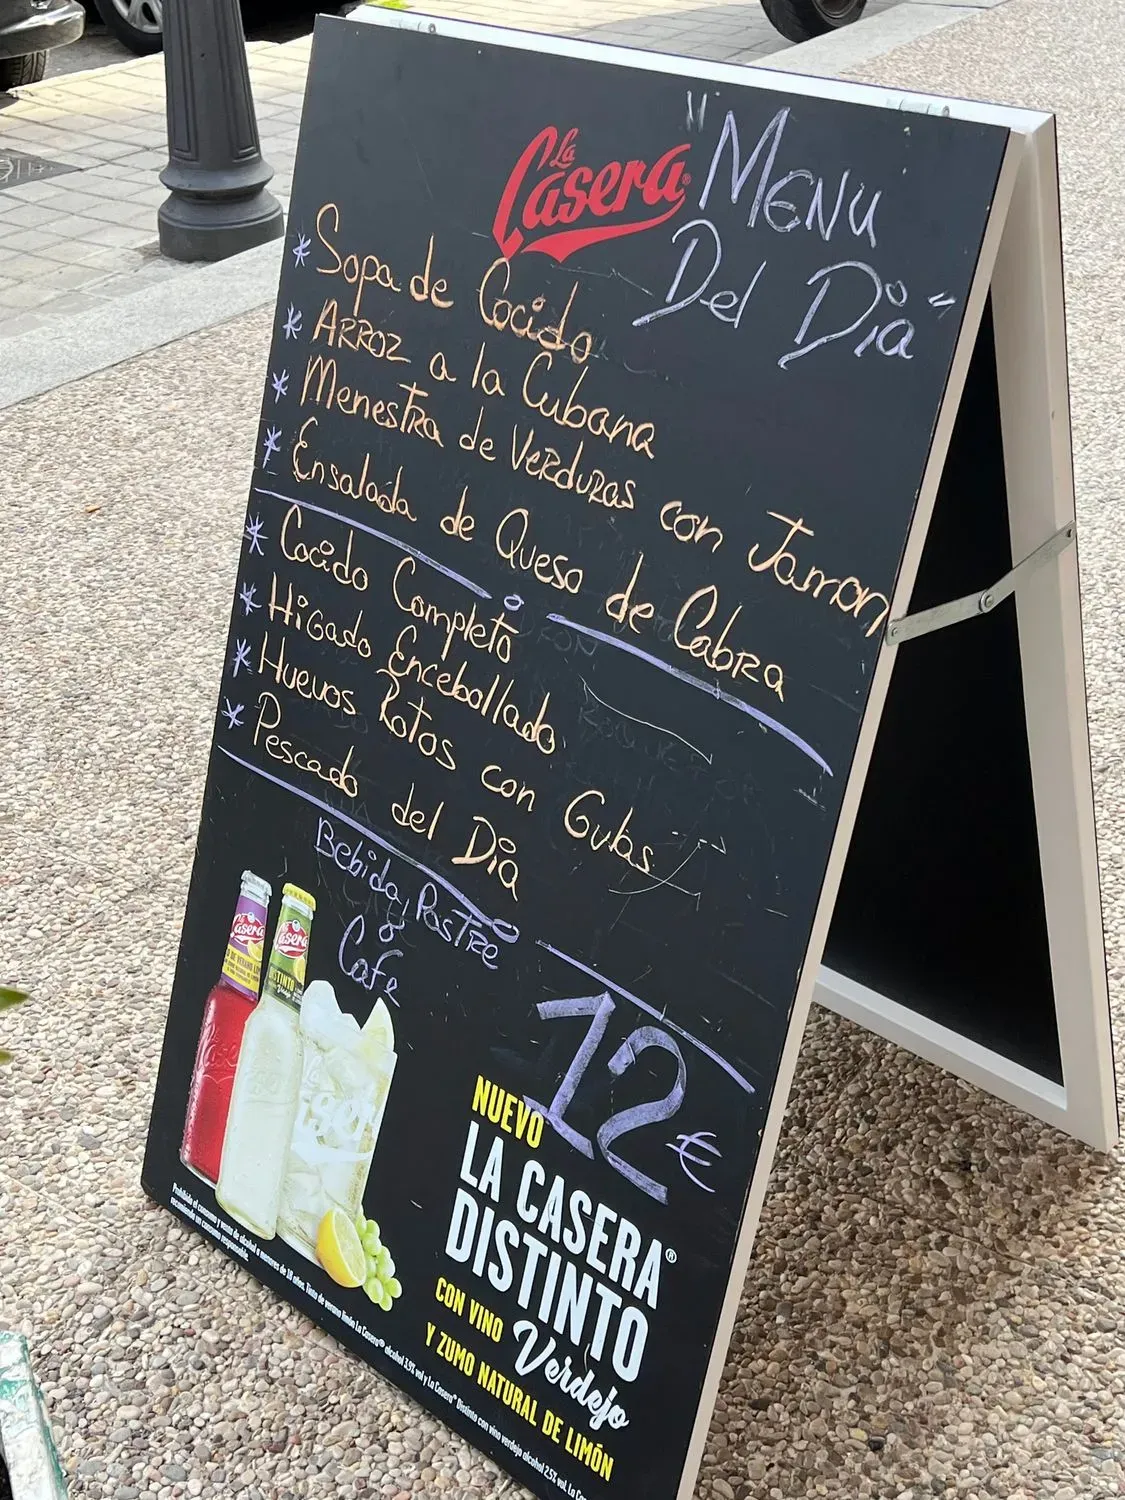 La Casera®
"Menu
Del Dia"
* Sopa de Cocido
* Arroz a la Cubana
* Menestra de Verduras con Jamon
* Ensalada de Queso de Cabra
* Cocido Completo
* Higado Encebollado
* Huevos Rotos con Gulas
* Pescado del Dia
Bebida, Postre
o
Cafe
12€
La Casera
La Casera
NUEVO
LA CASERA®
DISTINTO
CON VINO Verdejo
Y ZUMO NATURAL DE LIMÓN
Prohibido el consumo y venta de alcohol a menores de 18 años. Tinto de verano limón La Casera® alcohol 3,9% vol y La Casera® Distinto con vino verdejo alcohol 2,5% vol. La Ca
recomienda un consumo responsable.